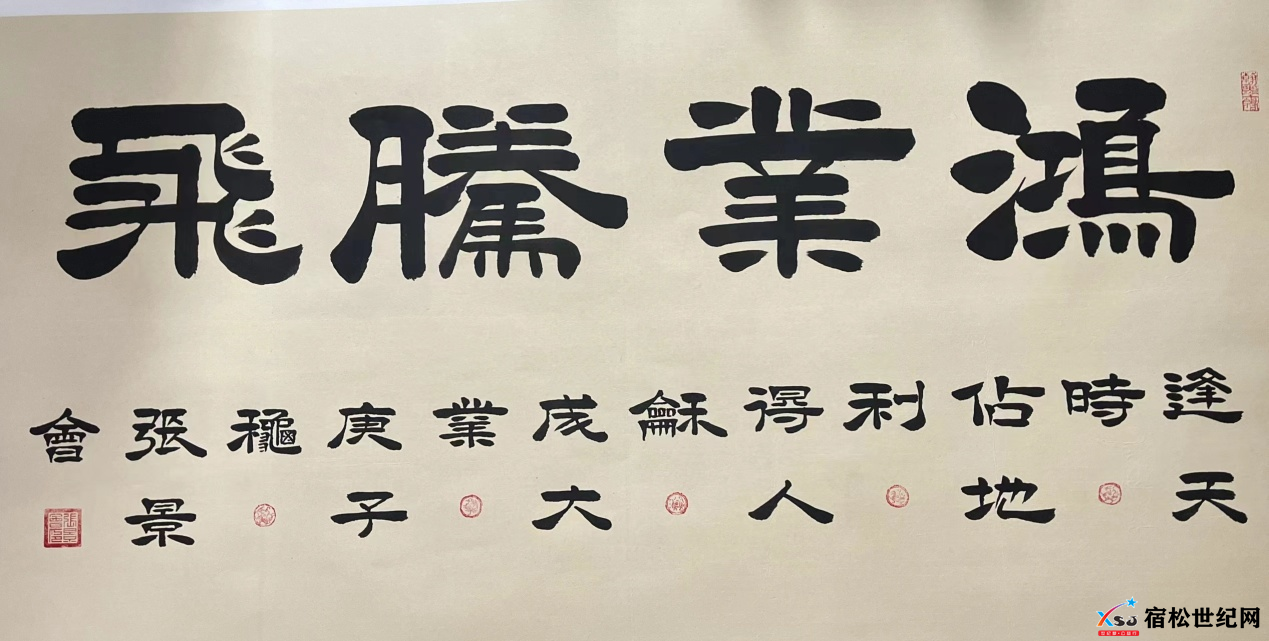 鴻業騰飛
逢天
時
佔地
利
得人
龢
成大
業
庚子
龝
張景
會
宿松世纪网